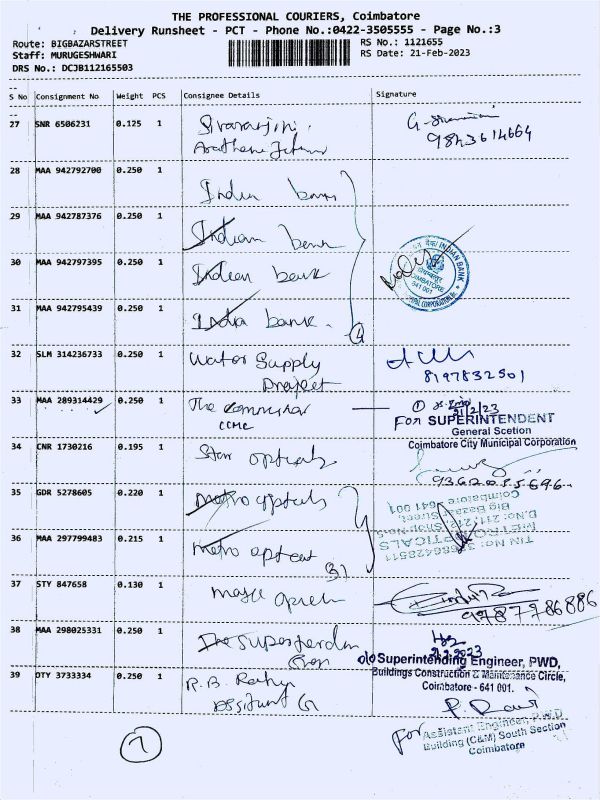 THE PROFESSIONAL COURIERS, Coimbatore
Delivery Runsheet - PCT - Phone No.:0422-3505555 - Page No.:3
Route: BIGBAZARSTREET
Staff: MURUGESHWARI
DRS No.: DCJB112165503
RS No.: 1121655
RS Date: 21-Feb-2023
S No Consignment No Weight PCS Consignee Details Signature
27 SNR 6506231 0.125 1
9843614664
28 MAA 942792700 0.250 1 Indian bank
29 MAA 942787376 0.250 1 Indian bank
30 MAA 942797395 0.250 1 Indian bank
INDIAN BANK
COIMBATORE
641 001
31 MAA 942795439 0.250 1 India bank.
4
32 SLM 314236733 0.250 1 Water Supply
Project
8197832501
33 MAA 289314429 0.250 1 The
CCMC
21/2/23
FOR SUPERINTENDENT
General Scetion
Coimbatore City Municipal Corporation
34 CNR 1730216 0.195 1 Star opticals
35 GDR 5278605 0.220 1 Metro opticals
TIN No: 33686428511
METRO OPTICALS
Big Bazaar Street,
Coimbatore - 641 001
36 MAA 297799483 0.215 1 Metro
37 STY 847658 0.130 1
9787786886
38 MAA 298025331 0.250 1 The
21.2.2023
o/o Superintending Engineer, PWD,
Buildings Construction & Maintenance Circle,
Coimbatore - 641 001.
39 OTY 3733334 0.250 1 P.B.
P. Ravi
for Assistant Engineer, P.W.D
Building (C&M) South Section
Coimbatore
7